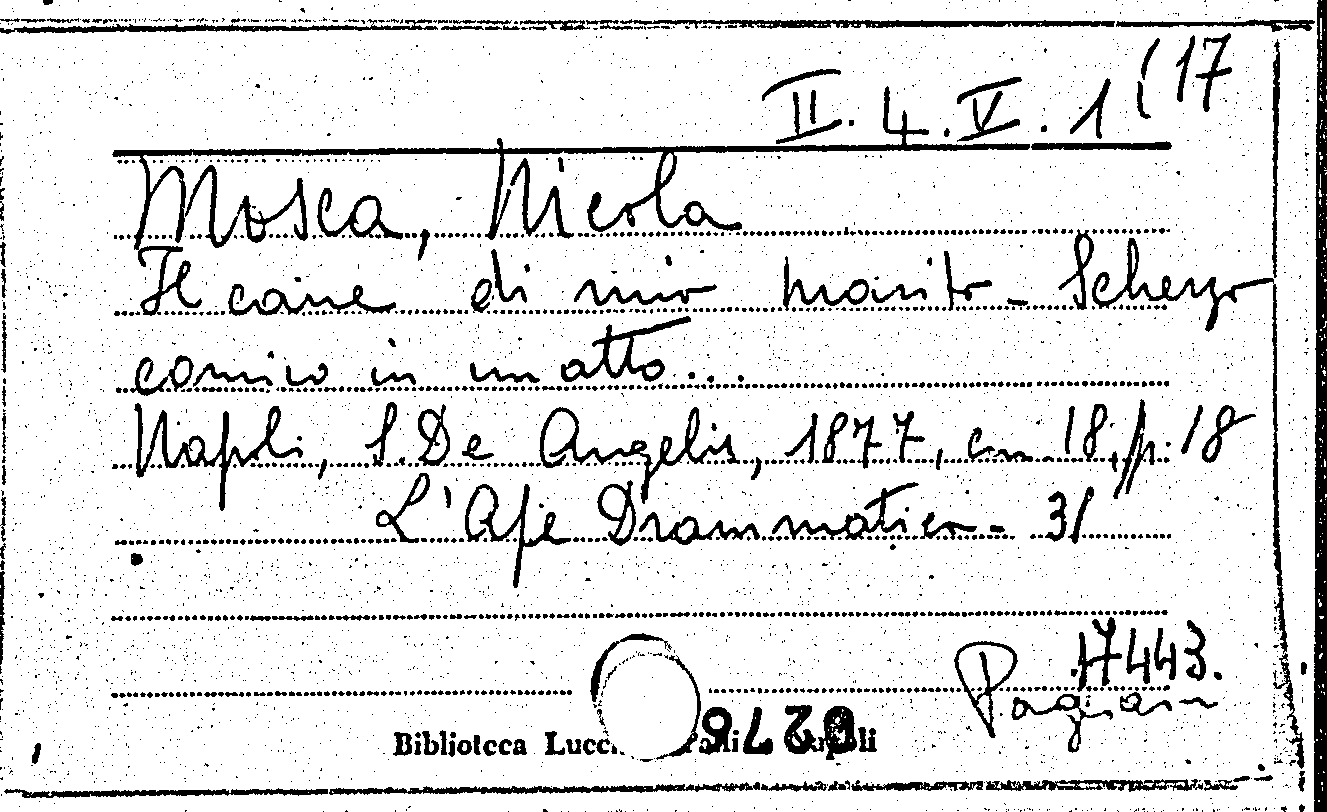 II. 4. V. 1 (17
Mosca, Nicola
Il cane di mio marito - Scherzo
comico in un atto...
Napoli, S. De Angelis, 1877, cm. 18, p. 18
L'Ape Drammatica - 31
17443.
Biblioteca Lucc